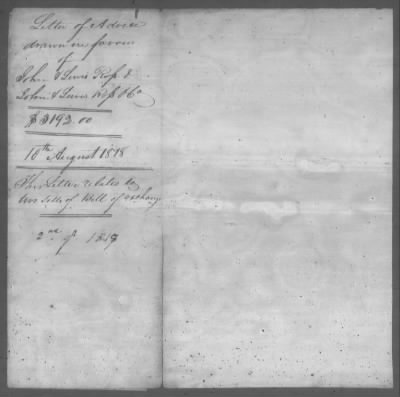 Letter of Advice
drawn in favour
of
John & Lewis Ross &
John & Lewis Ross & Co
$3192.00
10th August 1818
This Letter relates to
two Setts of Bill of Exchange
2nd of 1819